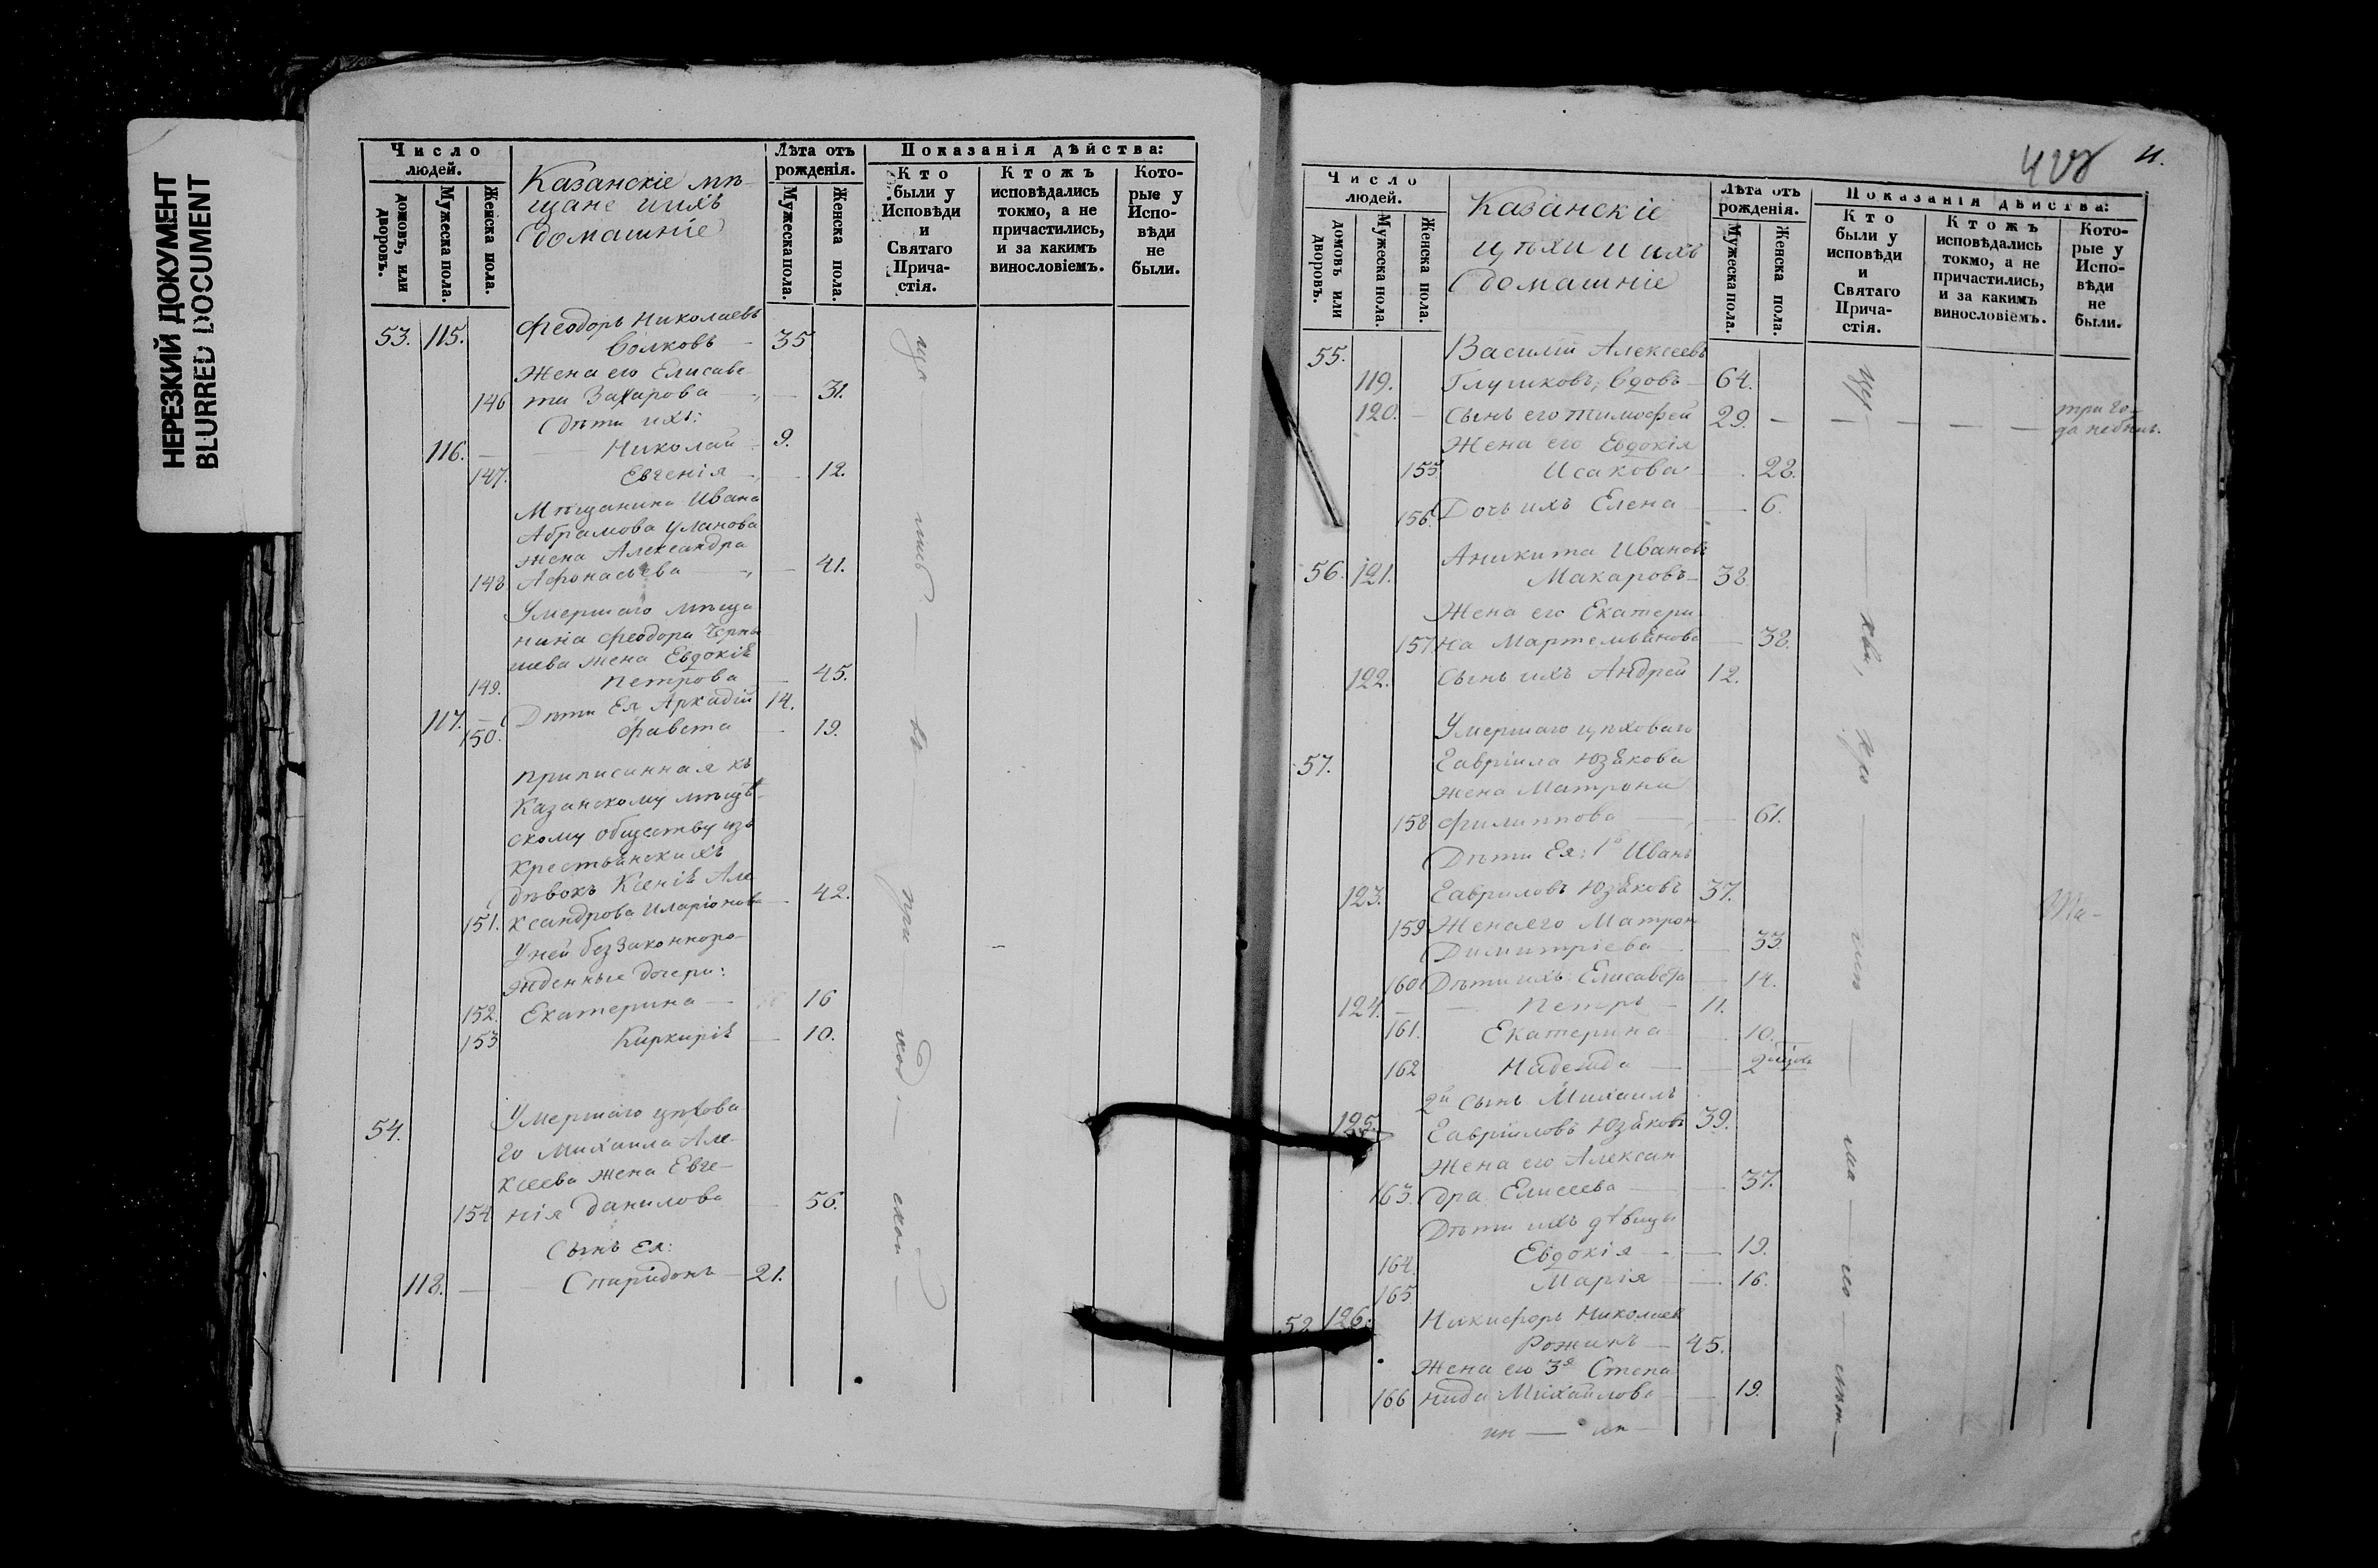 НЕРЕЗКИЙ ДОКУМЕНТ
BLURRED DOCUMENT
Число людей.
домовъ, или дворовъ.
Мужеска пола.
Женска пола.
Казанскіе мѣ-
щане и ихъ
домашніе
Лѣта отъ рожденія.
Мужеска пола.
Женска пола.
Показанія дѣйства:
Кто были у Исповѣди и Святаго Прича-стія.
Ктожъ исповѣдались токмо, а не причастились, и за какимъ винословіемъ.
Кото-рые у Испо-вѣди не были.
Феодоръ Николаевъ
53. 115. Волковъ — 35
Жена его Елисаве
146 та Захарова — 31.
Дѣти ихъ:
116. — Николай 9.
147. Евгенія — 12.
Мѣщанина Ивана
Абрамова Уланова
жена Александра
148 Афонасьева — 41.
Умершаго мѣща
нина Феодора Черны
шева жена Евдокія
149. Петрова — 45.
117. — Дѣти Ея Аркадій 14.
150. Фавста — 19.
Приписанная къ
Казанскому мѣщан-
скому обществу изъ
крестьянскихъ
дѣвокъ Ксенія Але
151. ксандрова Иларіонова — 42.
У ней беззаконноро-
жденные дочери:
152. Екатерина — 16
153 Киркирія — 10.
Умершаго цѣхова
54. го Михаила Але-
ксеева жена Евге-
154 нія Данилова — 56.
Сынъ Ея:
118. — Спиридонъ — 21.
408 11.
Число людей.
домовъ или дворовъ.
Мужеска пола.
Женска пола.
Казанскіе
цѣхи и ихъ
домашніе
Лѣта отъ рожденія.
Мужеска пола.
Женска пола.
Показанія дѣйства:
Кто были у исповѣди и Святаго Прича-стія.
Ктожъ исповѣдались токмо, а не причастились, и за какимъ винословіемъ.
Кото-рые у Испо-вѣди не были.
55. Василій Алексеевъ
119. Глушковъ, вдовъ — 64.
120. — Сынъ его Тимофей 29. — три го-
да не былъ.
Жена его Евдокія
155 Исакова — 28.
156. Дочь ихъ Елена — 6.
Аникита Ивановъ
56. 121. Макаровъ — 38.
Жена его Екатери
157. на Мартемьянова — 38.
122. Сынъ ихъ Андрей 12.
Умершаго цѣховаго
57. Гавріила Юзякова
жена Матрона
158 Филиппова — 61.
Дѣти Ея: 1й Иванъ
123. Гавриловъ Юзяковъ 37.
159 Жена его Матрон
Димитріева — 33
160 Дѣти ихъ: Елисавета — 14.
124. — Петръ — 11.
161. Екатерина — 10.
162 Надежда — 2
2й сынъ Михаилъ
125. Гавріиловъ Юзяковъ 39.
Жена его Алексан
163. дра Елисеева — 37.
Дѣти ихъ дѣвицы
164. Евдокія — 19.
165. Марія — 16.
58 126. Никифоръ Николаев
Рожинъ — 45.
Жена его 3я Степа
166 нида Михайлова — 19.